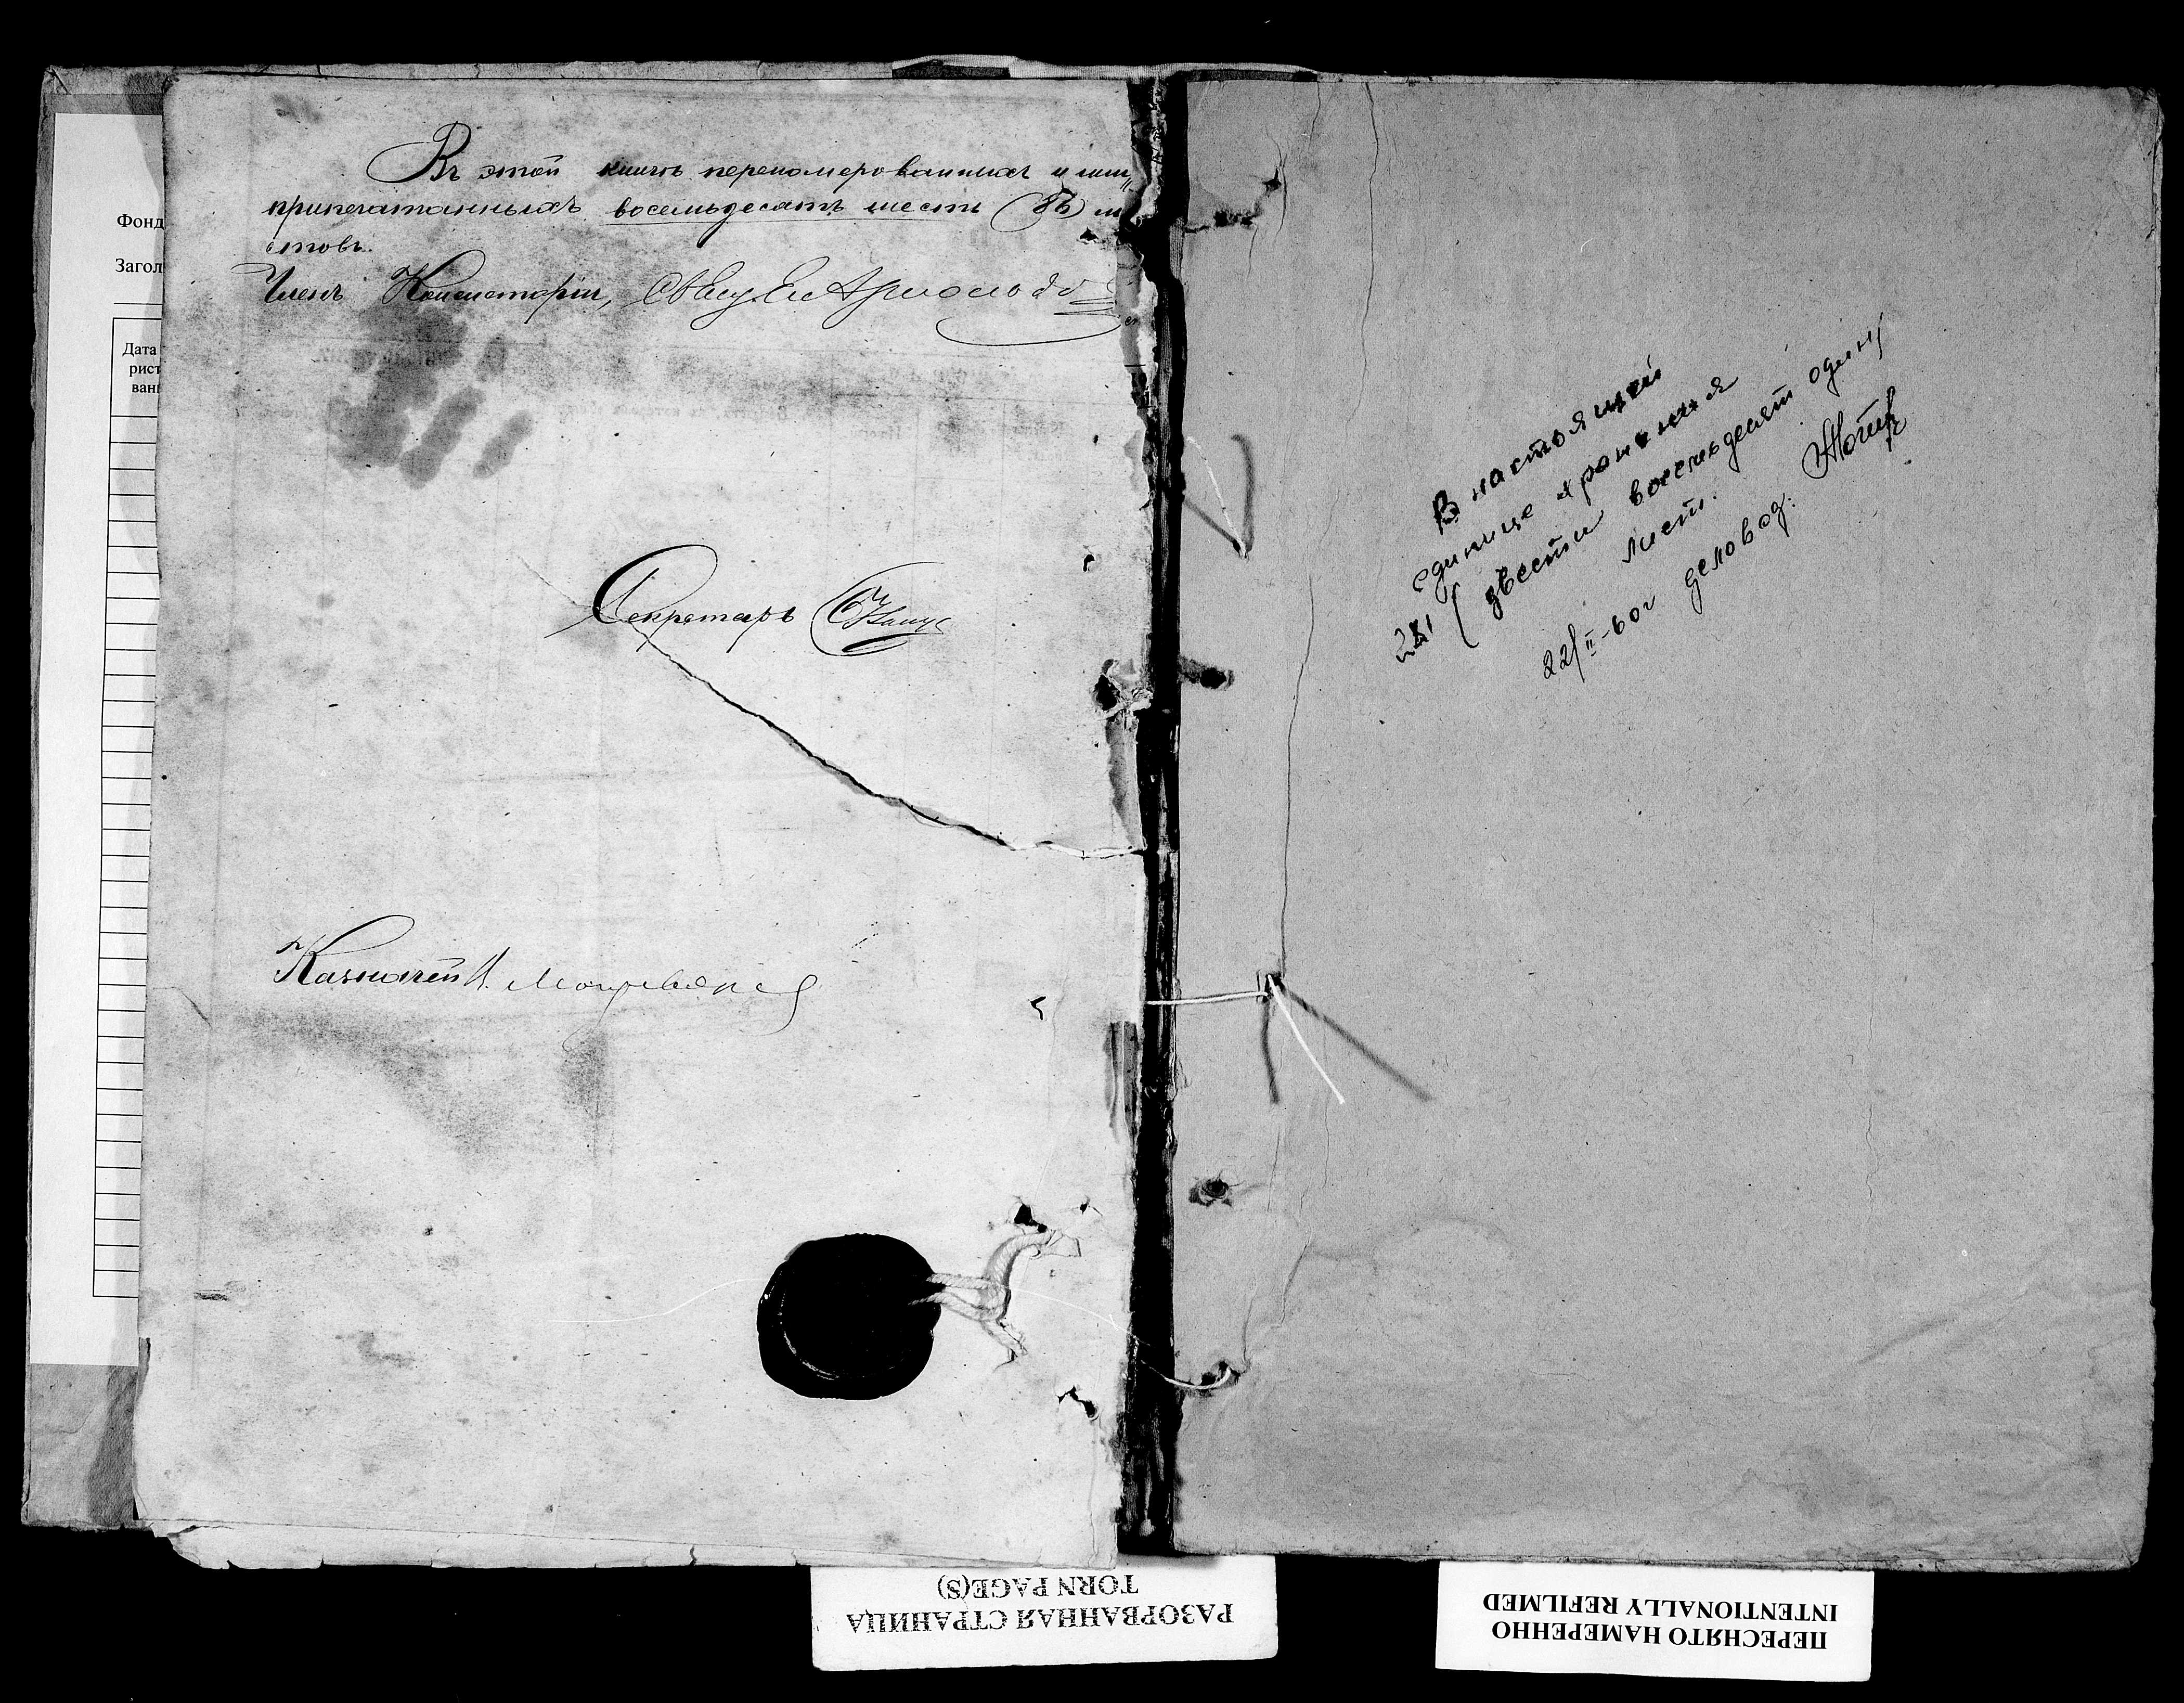 Фонд
Загол
Дата
рист
ван
Въ этой книгѣ перенумерованныхъ и
припечатанныхъ восемьдесятъ шесть (86) ли
стовъ.
Членъ Консисторіи,
Секретарь
Казначей
В настоящей
единице хранения
281 (двести восемьдесят один)
лист.
22/II-60г деловод.
РАЗОРВАННАЯ СТРАНИЦА
TORN PAGE(S)
ПЕРЕСНЯТО НАМЕРЕННО
INTENTIONALLY REFILMED